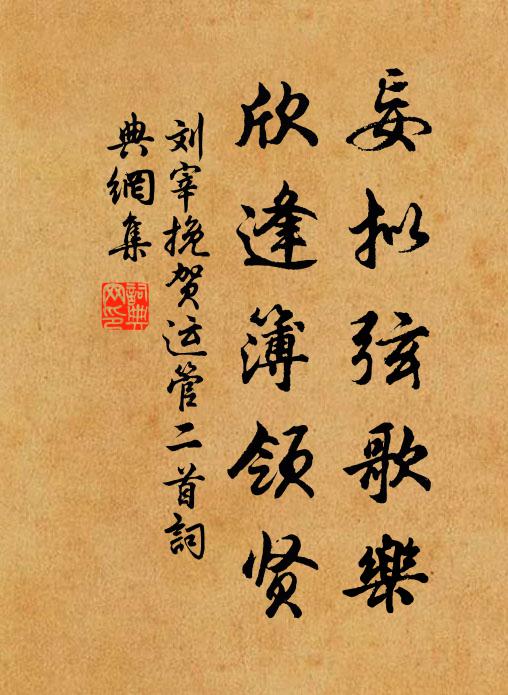 妄拟弦歌樂
欣逢簿领贤
刘宰挽贺运管二首詞
典網集
詞典
网印